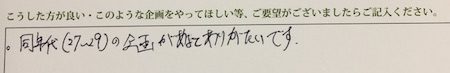 こうした方が良い・このような企画をやってほしい等、ご要望がございましたらご記入ください。
。同年代(27〜29)の企画があるとありがたいです.